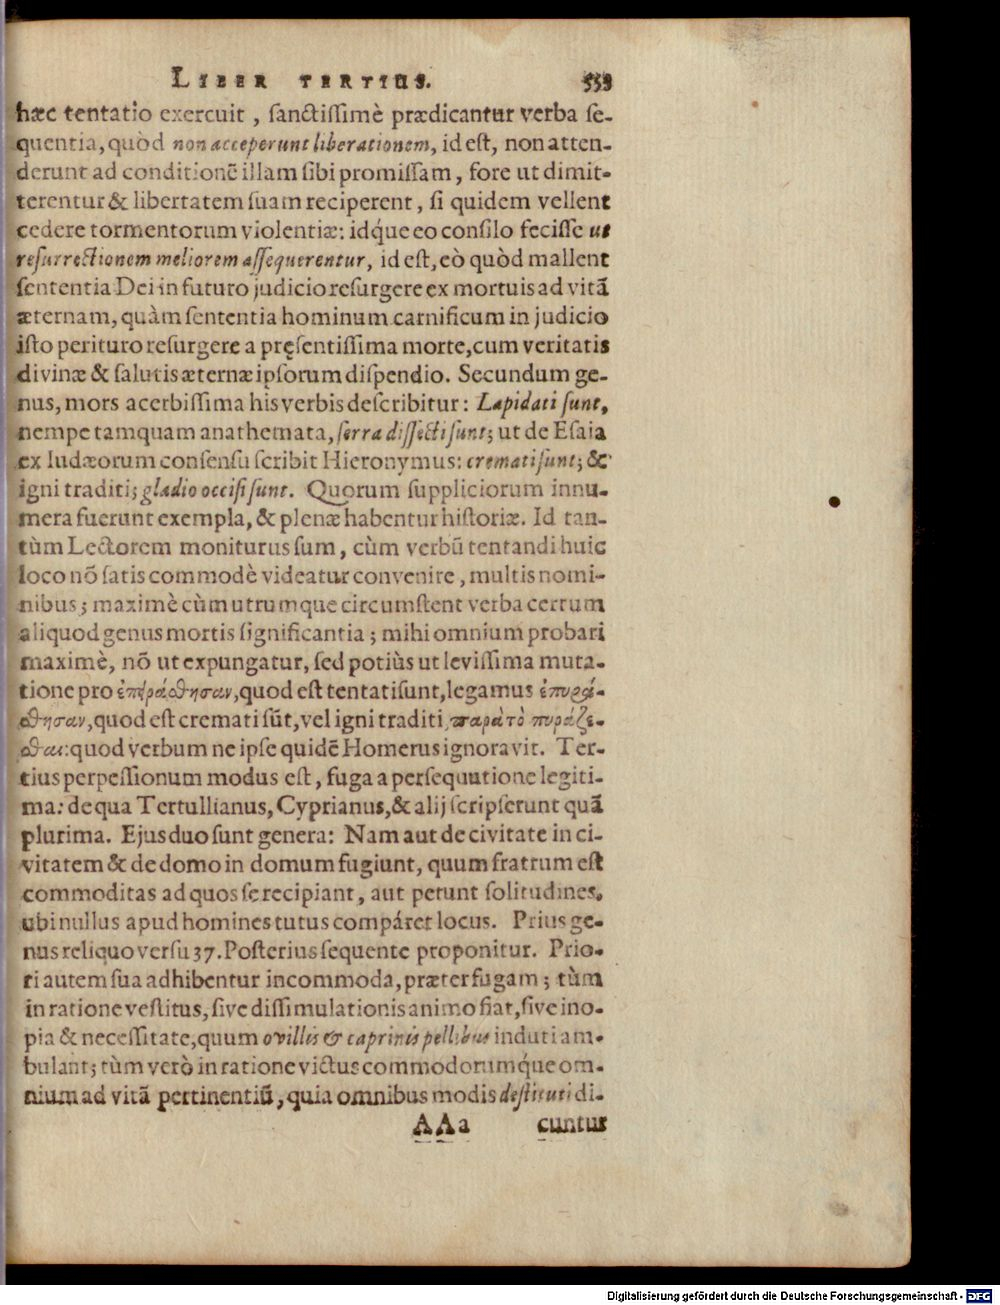 LIBER TERTIUS. 553
hæc tentatio exercuit, ſanctiſſimè prædicantur verba ſe-
quentia, quòd non acceperunt liberationem, id eſt, non atten-
derunt ad conditionẽ illam ſibi promiſſam, fore ut dimit-
terentur & libertatem ſuam reciperent, ſi quidem vellent
cedere tormentorum violentiæ: idq́ue eo conſilo feciſſe ut
reſurrectionem meliorem aſſequerentur, id eſt, eò quòd mallent
ſententia Dei in futuro judicio reſurgere ex mortuis ad vitã
æternam, quàm ſententia hominum carnificum in judicio
iſto perituro reſurgere a pręſentiſſima morte, cum veritatis
divinæ & ſalutis æternæ ipſorum diſpendio. Secundum ge-
nus, mors acerbiſſima his verbis deſcribitur: Lapidati ſunt,
nempe tamquam anathemata, ſerra diſſecti ſunt; ut de Eſaia
ex Iudæorum conſenſu ſcribit Hieronymus: cremati ſunt; &
igni traditi; gladio occiſi ſunt. Quorum ſuppliciorum innu-
mera fuerunt exempla, & plenæ habentur hiſtoriæ. Id tan-
tùm Lectorem moniturus ſum, cùm verbũ tentandi huic
loco nõ ſatis commodè videatur convenire, multis nomi-
nibus; maximè cùm utrumque circumſtent verba certum
aliquod genus mortis ſignificantia; mihi omnium probari
maximè, nõ ut expungatur, ſed potiùs ut leviſſima muta-
tione pro ἐπειράσθησαν, quod eſt tentati ſunt, legamus ἐπυρά-
σθησαν, quod eſt cremati sũt, vel igni traditi, παρὰ τὸ πυράζε-
σθαι: quod verbum ne ipſe quidẽ Homerus ignoravit. Ter-
tius perpeſſionum modus eſt, fuga a perſequutione legiti-
ma: de qua Tertullianus, Cyprianus, & alij ſcripſerunt quã
plurima. Ejus duo ſunt genera: Nam aut de civitate in ci-
vitatem & de domo in domum fugiunt, quum fratrum eſt
commoditas ad quos ſe recipiant, aut petunt ſolitudines,
ubi nullus apud homines tutus compáret locus. Prius ge-
nus reliquo verſu 37. Poſterius ſequente proponitur. Prio-
ri autem ſua adhibentur incommoda, præter fugam; tùm
in ratione veſtitus, ſive diſſimulationis animo fiat, ſive ino-
pia & neceſſitate, quum ovillis & caprinis pellibus induti am-
bulant; tùm verò in ratione victus commodorumq́ue om-
nium ad vitã pertinentiũ, quia omnibus modis deſtituti di-
AAa cuntur
Digitalisierung gefördert durch die Deutsche Forschungsgemeinschaft - DFG